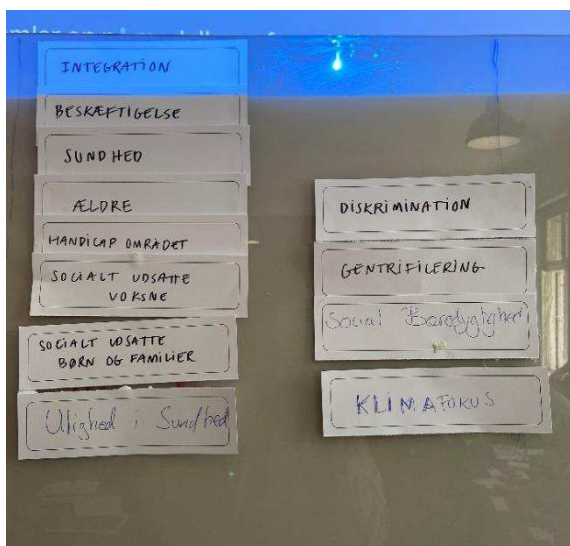 INTEGRATION
BESKÆFTIGELSE
SUNDHED
ÆLDRE
HANDICAP OMRÅDET
SOCIALT UDSATTE
VOKSNE
SOCIALT UDSATTE
BØRN OG FAMILIER
Ulighed i Sundhed
DISKRIMINATION
GENTRIFILERING
Social Bæredygtighed
KLIMAFOKUS